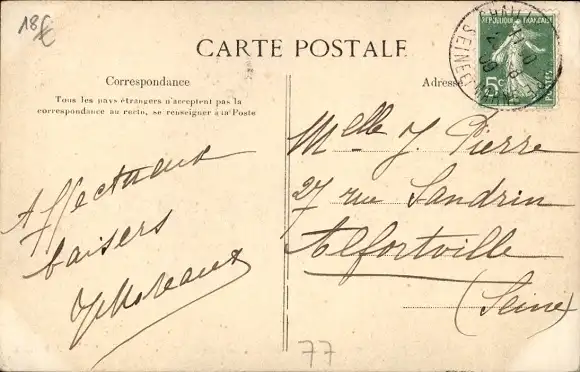 18€
CARTE POSTALE
Correspondance
Tous les pays étrangers n'acceptent pas la
correspondance au recto, se renseigner à la Poste
Affectueux
baisers
Adresse
Melle J. Pierre
27 rue Sandrin
Alfortville
(Seine)
RÉPUBLIQUE FRANÇAISE
5c
77